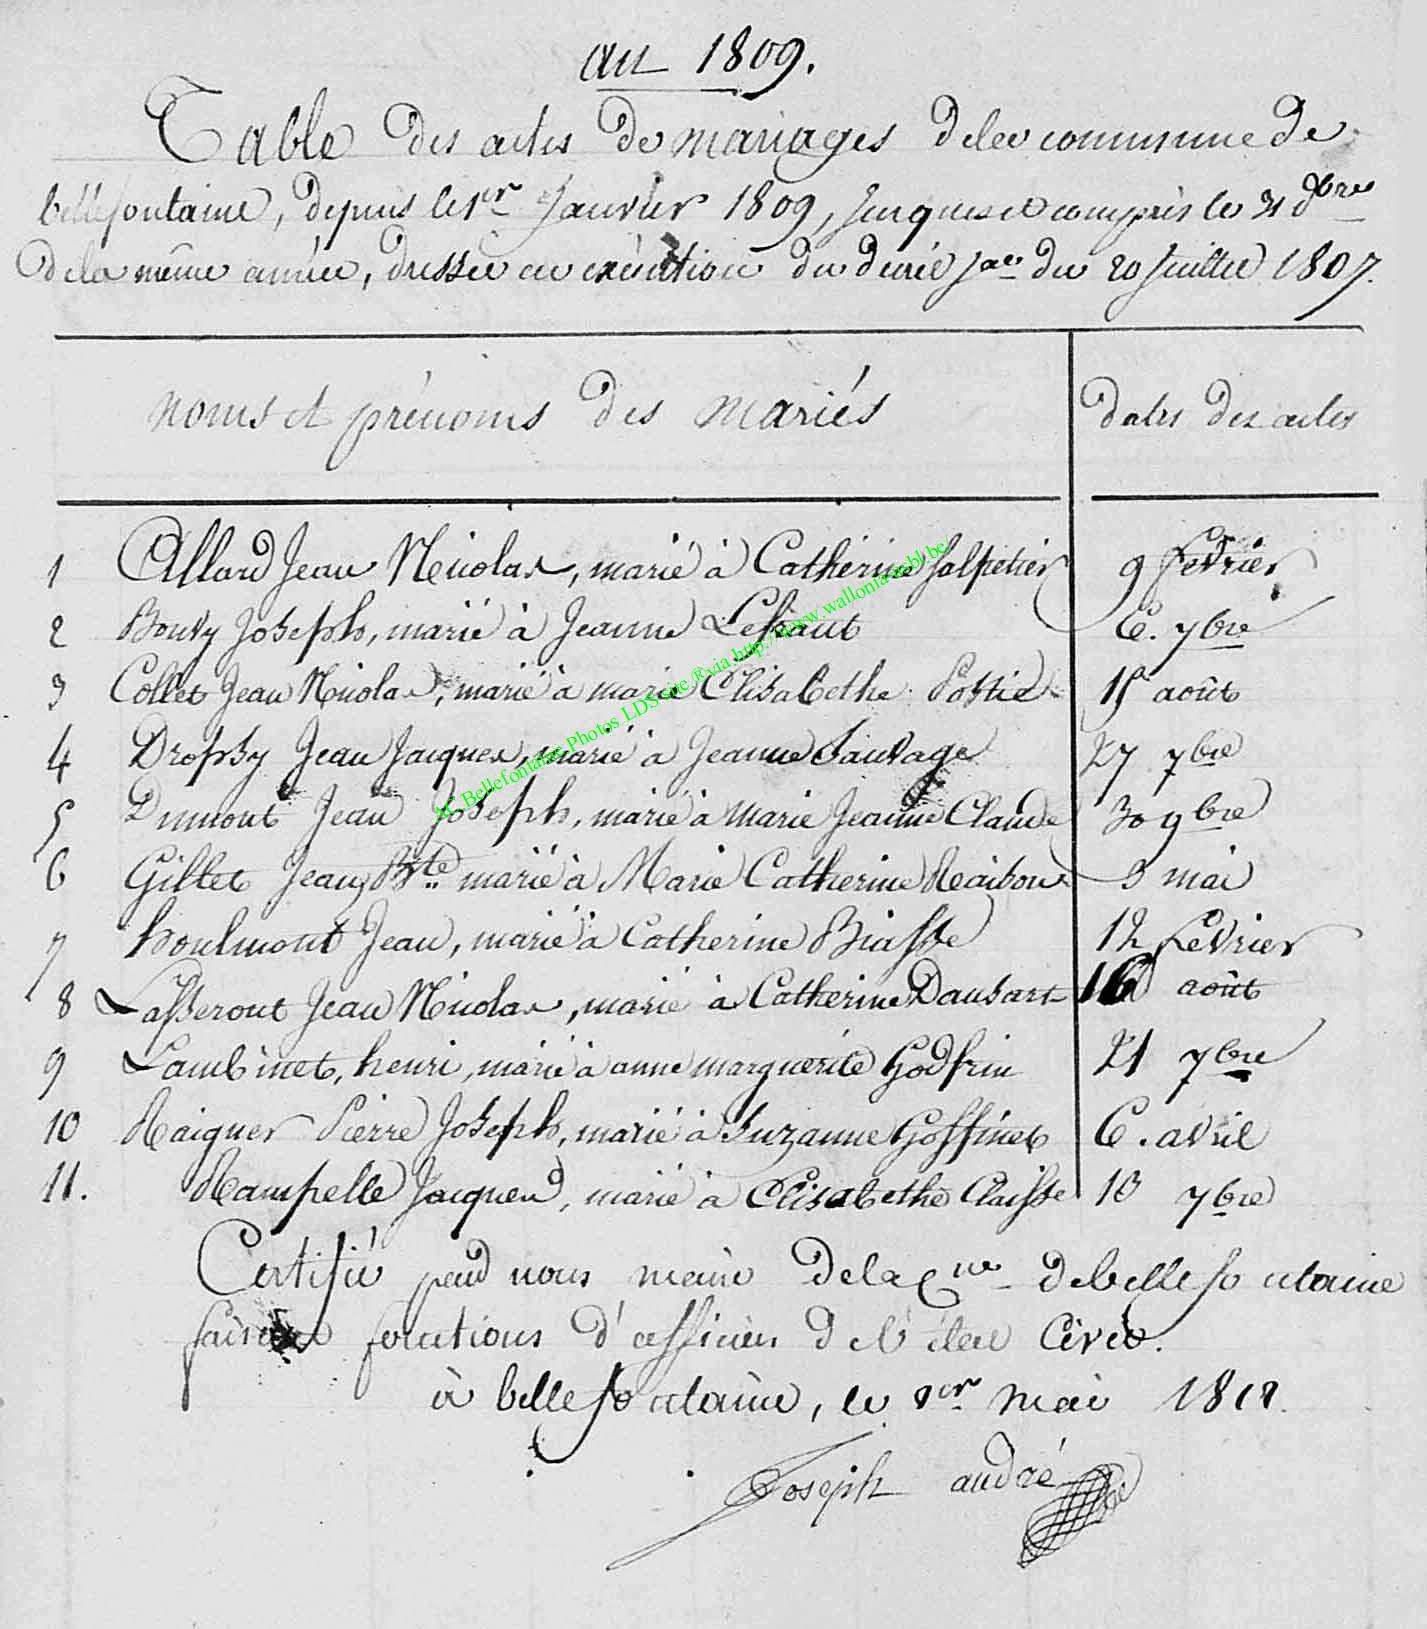 an 1809.
Table des actes de mariages dela commune de
bellefontaine, depuis le 1er Janvier 1809, jusques et compris le 31 Xbre
dela même année, dressée en exécution du decret du 20 juillet 1807.
noms et prénoms des mariés dates des actes
1 Allard Jean Nicolas, marié à Catherine Salpetier 9 fevrier
2 Bouvy Joseph, marié à Jeanne 6. 7bre
3 Collet Jean Nicolas, marié à marie Elisabethe 15 août
4 Dropsy Jean Jacques, marié à Jeanne Sauvage 27 7bre
5 Dumont Jean Joseph, marié à Marie Jeanne Claude 30 9bre
6 Gillet Jean Bte marié à Marie Catherine mai
7 houlmont Jean, marié à Catherine Biasse 12 Levrier
8 Lasseront Jean Nicolas, marié à Catherine Dansart 16 août
9 Lambinet, henri, marié à anne marguerite Godfrin 21 7bre
10 Raiguer Pierre Joseph, marié à Suzanne Goffinet 6. avril
11. Rampelle Jacques, marié à Elisabethe Claisse 10 7bre
Certifié nous maire dela Cne de bellefontaine
faisant fonctions d'officier de l'état Civil.
à bellefontaine, le 1er mai 181
Joseph andré
AC Bellefontaine Photos LDS site ® via http://www.wallonia-asbl.be/